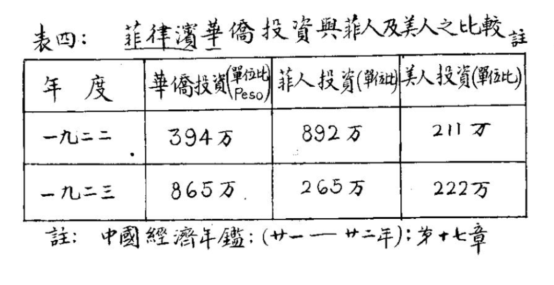 表四: 菲律濱華僑投資與菲人及美人之比較註
年度 華僑投資(單位比Peso) 菲人投資(單位比) 美人投資(單位比)
一九二二 394万 892万 211万
一九二三 865万 265万 222万
註: 中國經濟年鑑: (廿一——廿二年); 第十七章